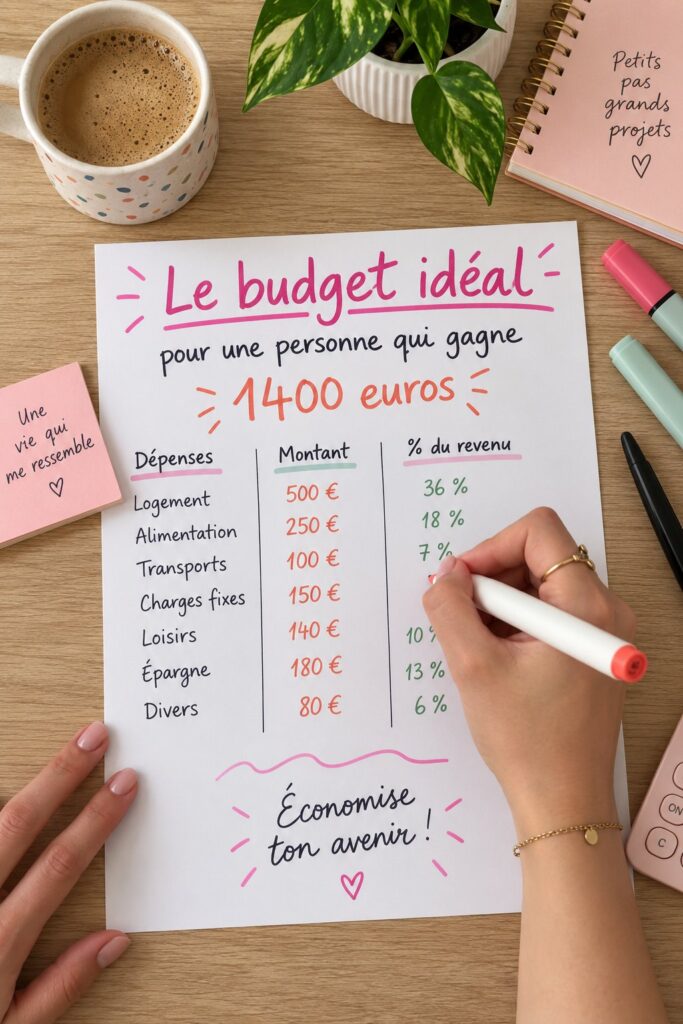 Petits
pas
grands
projets
Le budget idéal
pour une personne qui gagne
1400 euros
Une
vie qui
me ressemble
Dépenses Montant % du revenu
Logement 500 € 36 %
Alimentation 250 € 18 %
Transports 100 € 7 %
Charges fixes 150 €
Loisirs 140 € 10 %
Épargne 180 € 13 %
Divers 80 € 6 %
Économise
ton avenir !
ON
C